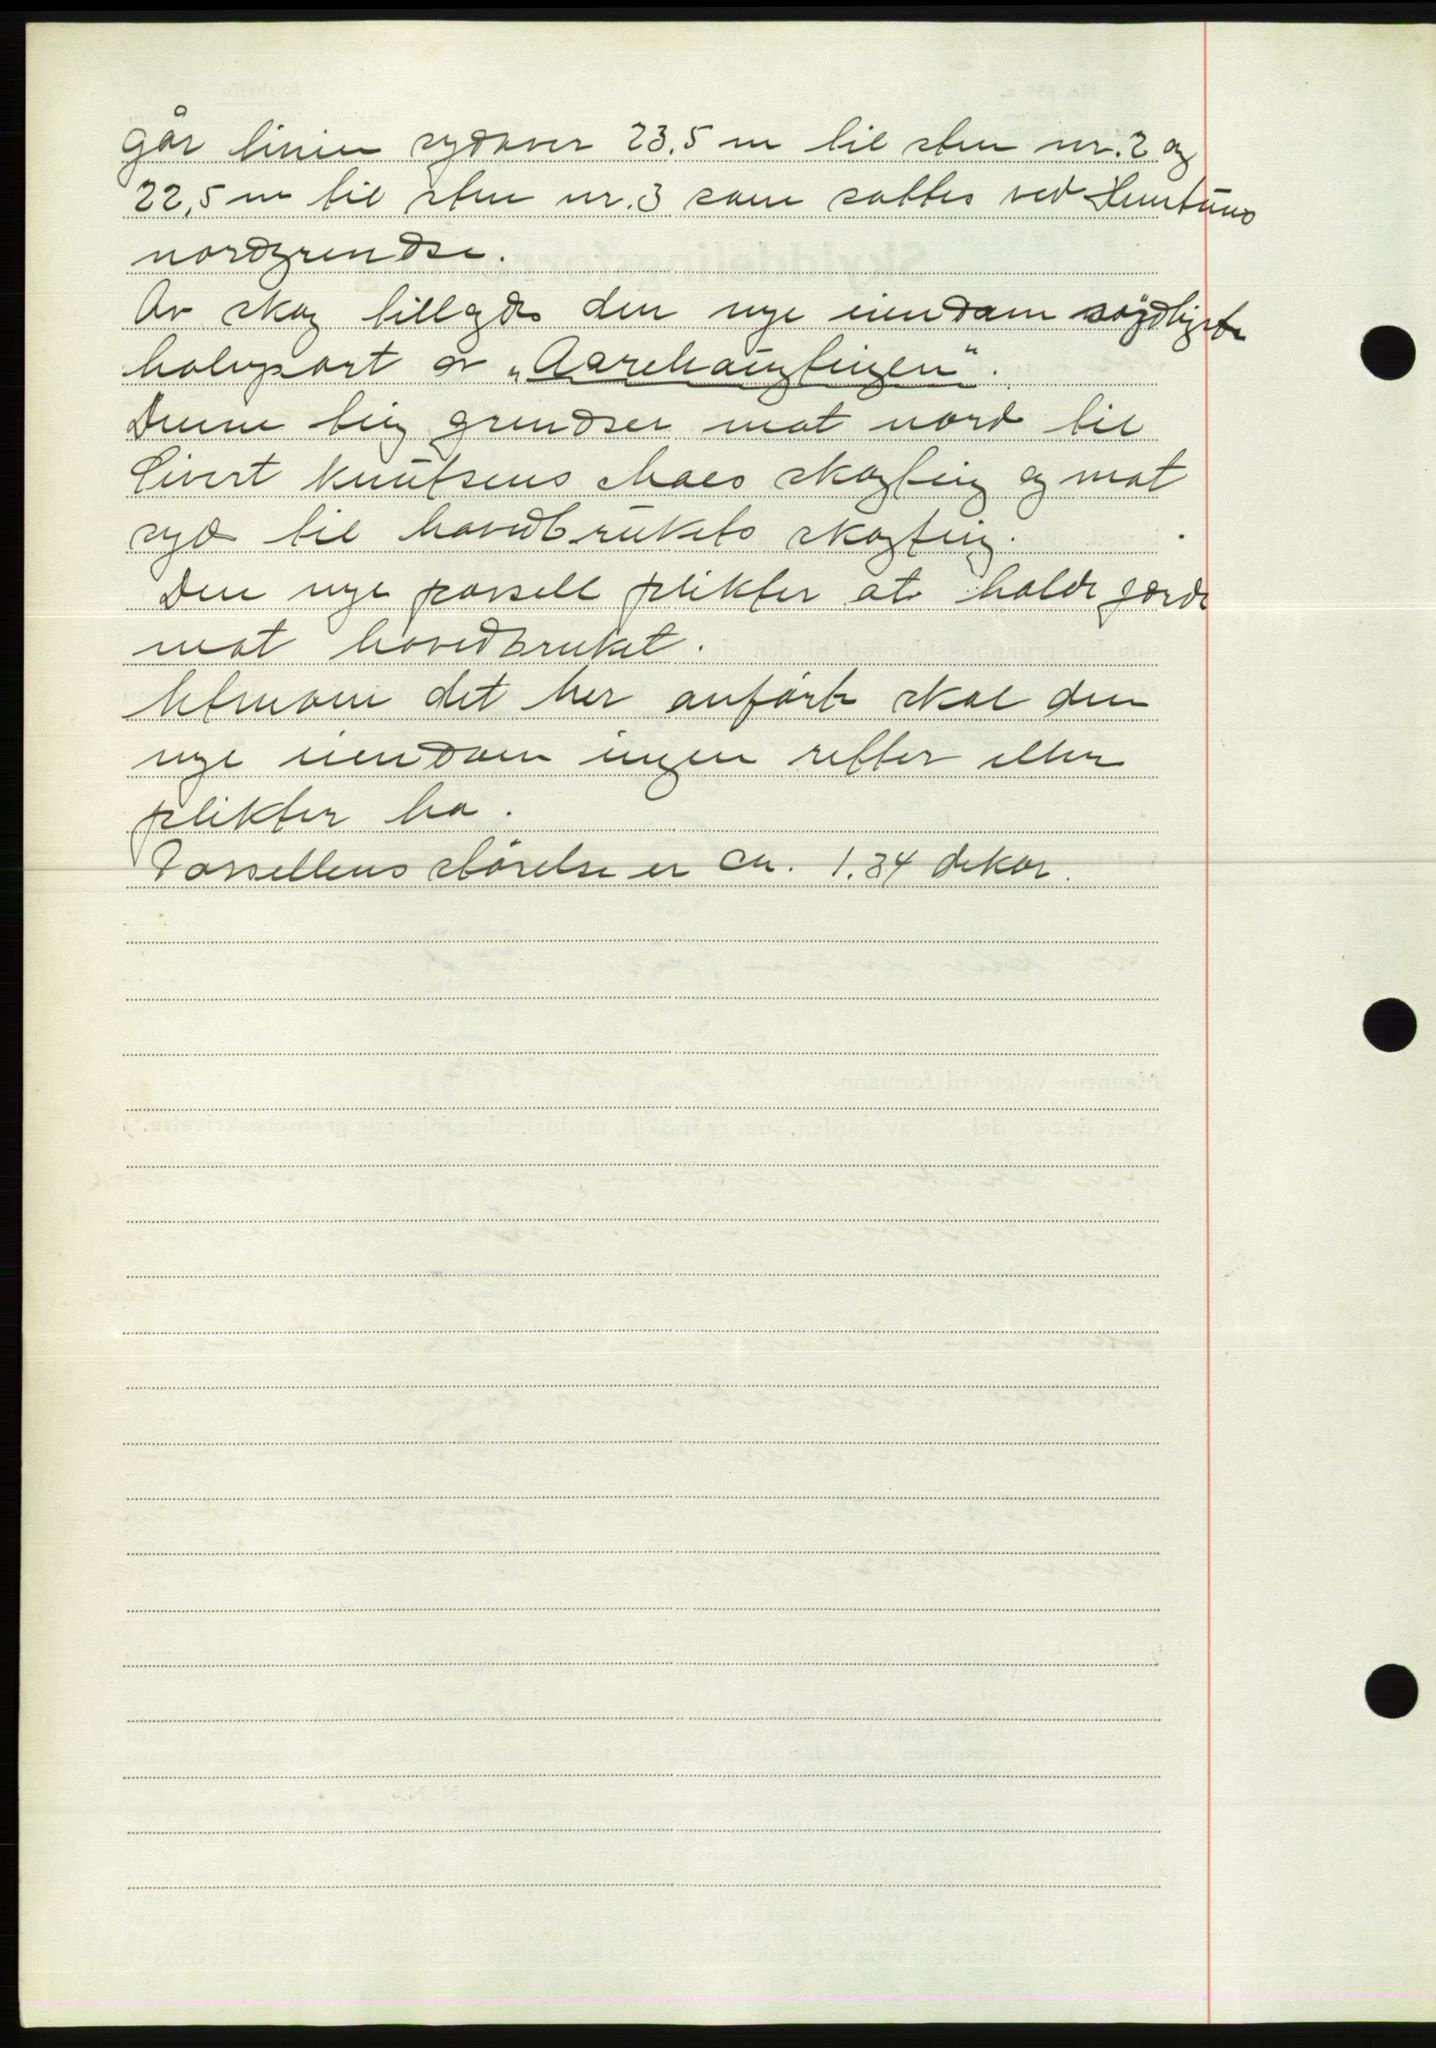 går linien sydover 23,5 m til sten nr. 2 og
22,5 m til sten nr. 3 som sattes ved
nordgrendse.
Av skog tillegdes den nye eiendom søydligste
halvpart av „Aarehaugteigen".
Denne teig grendser mot nord til
Sivert Knutsens Moes skogteig og mot
syd til hovedbrukets skogteig.
Den nye parsell plikter at holde gjerde
mot hovedbruket.
Utenom det her anførte skal den
nye eiendom ingen retter eller
plikter ha.
Parsellens störelse er ca. 1.34 dekar.